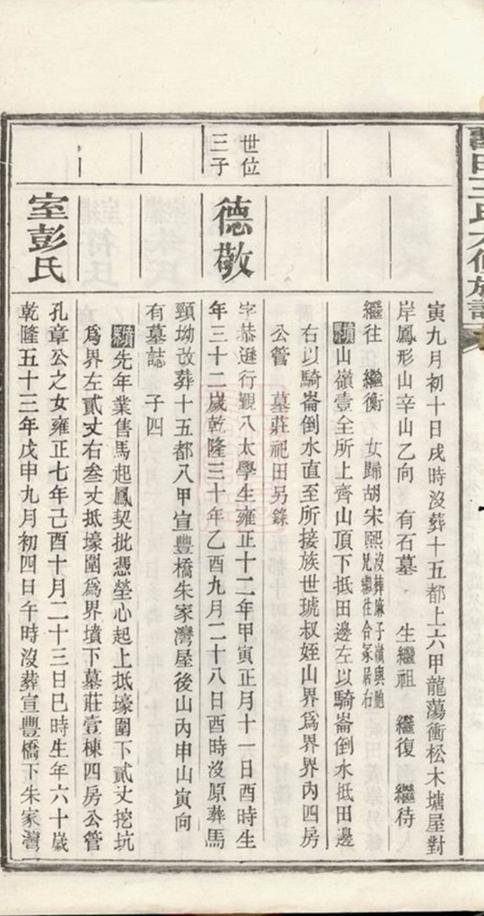 寅九月初十日戌時沒葬十五都上六甲龍蕩衝松木塘屋對
岸鳳形山辛山乙向 有石墓 生繼祖 繼復 繼待
繼往 繼衡 女歸胡宋熙沒葬麻子嶺與胞兄繼往合冢居右
山嶺壹全所上齊山頂下抵田邊左以騎崙倒水抵田邊
右以騎崙倒水直至所接族世琥叔姪山界爲界界內四房
公管 墓莊祀田另錄
世位
三子
德敬
字恭遜行觀八太學生雍正十二年甲寅正月十一日酉時生
年三十二歲乾隆三十年乙酉九月二十八日酉時沒原葬馬
頸坳改葬十五都八甲宣豐橋朱家灣屋後山內申山寅向
有墓誌 子四
先年業售馬起鳳契批憑塋心起上抵壕圍下貳丈挖坑
爲界左貳丈右叁丈抵壕圍爲界墳下墓莊壹棟四房公管
室彭氏
孔章公之女雍正七年己酉十月二十三日巳時生年六十歲
乾隆五十三年戊申九月初四日午時沒葬宣豐橋下朱家灣